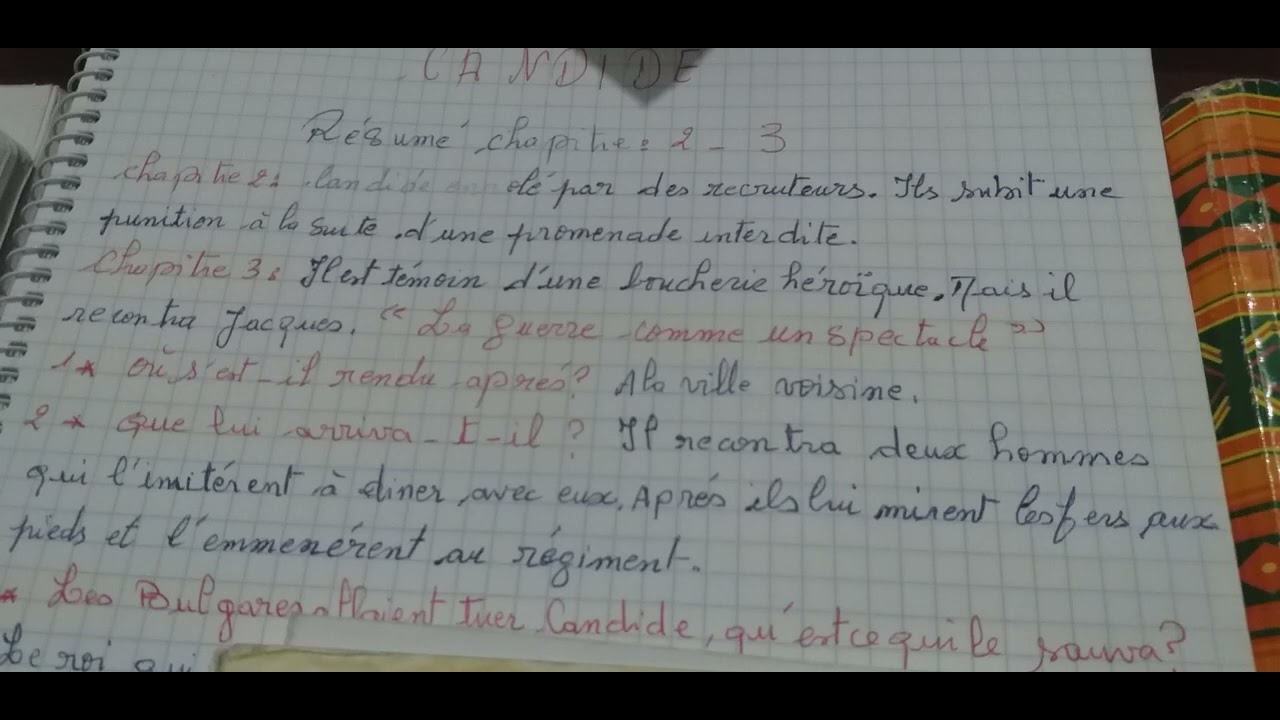 CANDIDE
Résumé chapitre: 2 - 3
Chapitre 2: Candide par des recruteurs. Ils subit une
punition à la suite d'une promenade interdite.
Chapitre 3: Il est témoin d'une boucherie héroïque. Mais il
recontra Jacques. "La guerre comme un spectacle"
1* Où s'est-il rendu aprés? A la ville voisine.
2 * Que lui arriva-t-il? Il recontra deux hommes
qui l'imitérent à diner avec eux. Aprés ils lui mirent les fers aux
pieds et l'emmenérent au régiment.
* Les Bulgares allaient tuer Candide, qu'est ce qui le sauva?
Le roi qui